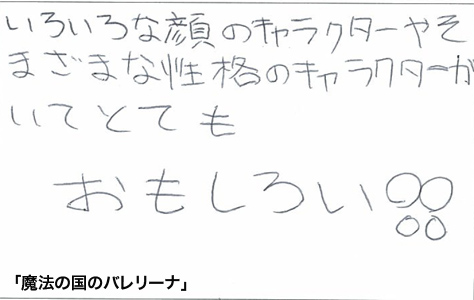 いろいろな顔のキャラクターやそ
まざまな性格のキャラクターが
いてとても
おもしろい!!
「魔法の国のバレリーナ」